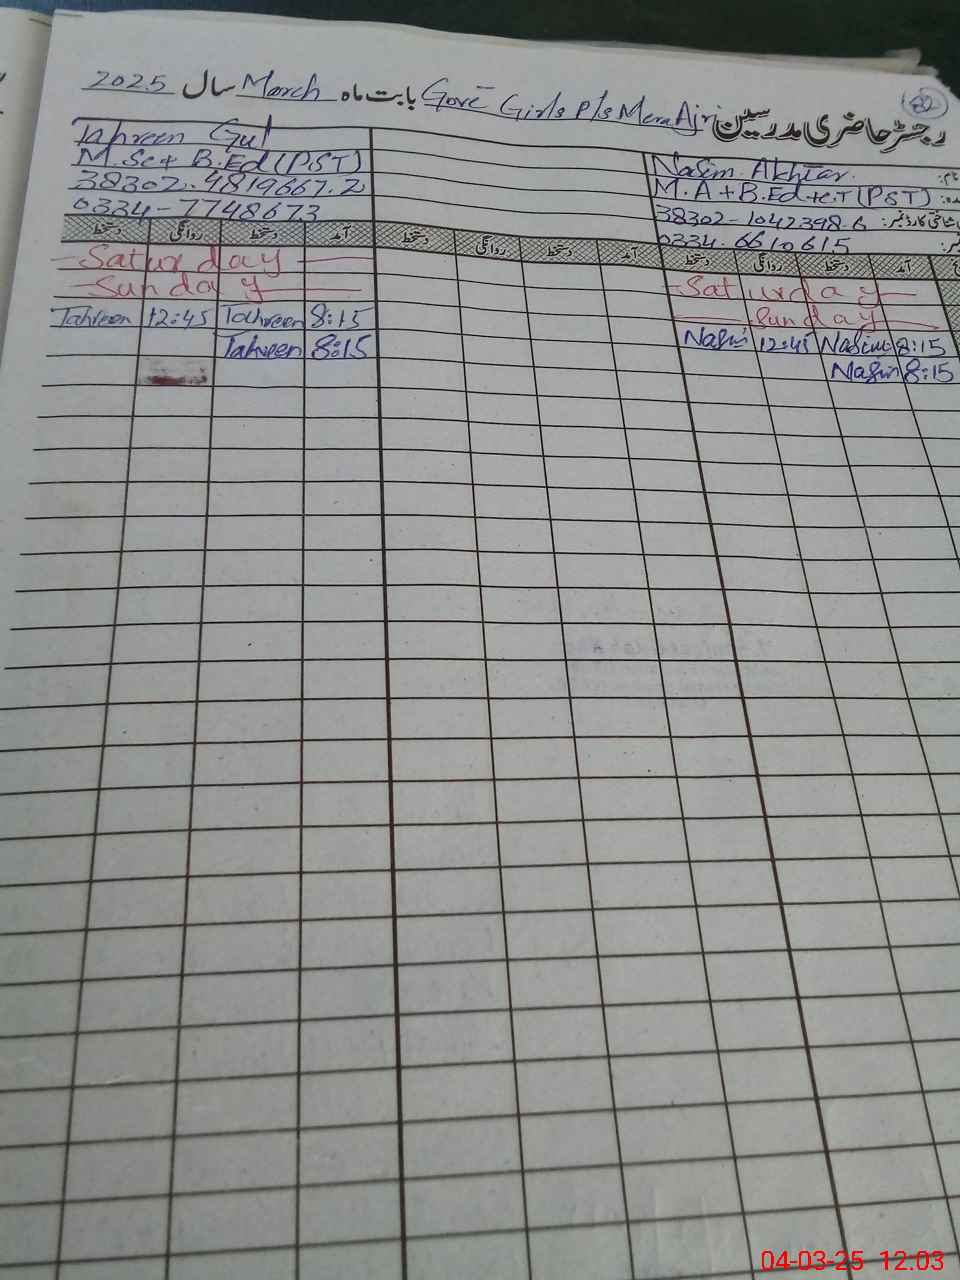 82
رجسٹر حاضری مدرسین Govt Girls P/s Mera Ajri بابت ماہ March سال 2025
Nasim Akhtar.
M.A + B.Ed + C.T (PST)
38302-1042398.6 شناختی کارڈ نمبر:
0334.6610615
Tahreen Gul
M.Sc + B.Ed (PST)
38302.4819667.2
0334-7748673
آمد دستخط روانگی دستخط
آمد دستخط روانگی دستخط
آمد دستخط روانگی دستخط
Saturday
Sunday
Nasim 12:45 Nasim 8:15
Nasim 8:15
Saturday
Sunday
Tahreen 12:45 Tahreen 8:15
Tahreen 8:15
04-03-25 12.03